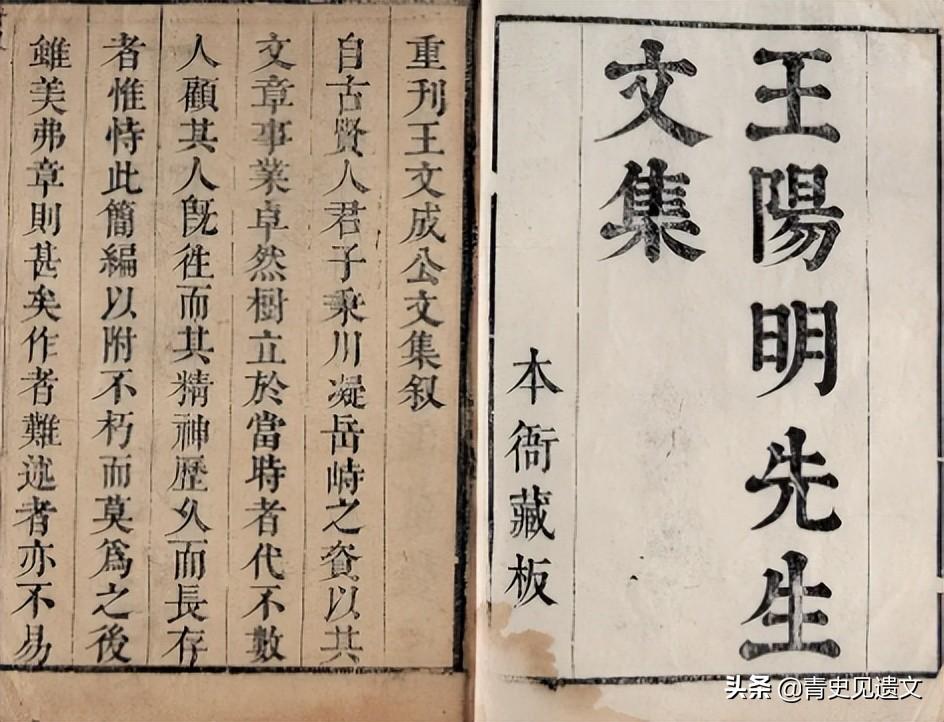 王陽明先生
文集
本衙藏板
重刊王文成公文集叙
自古賢人君子秉川凝岳峙之資以其
文章事業卓然樹立於當時者代不數
人顧其人旣徃而其精神歷久而長存
者惟恃此簡編以附不朽而莫爲之後
雖美弗章則甚矣作者難述者亦不易
头条 @青史见遗文